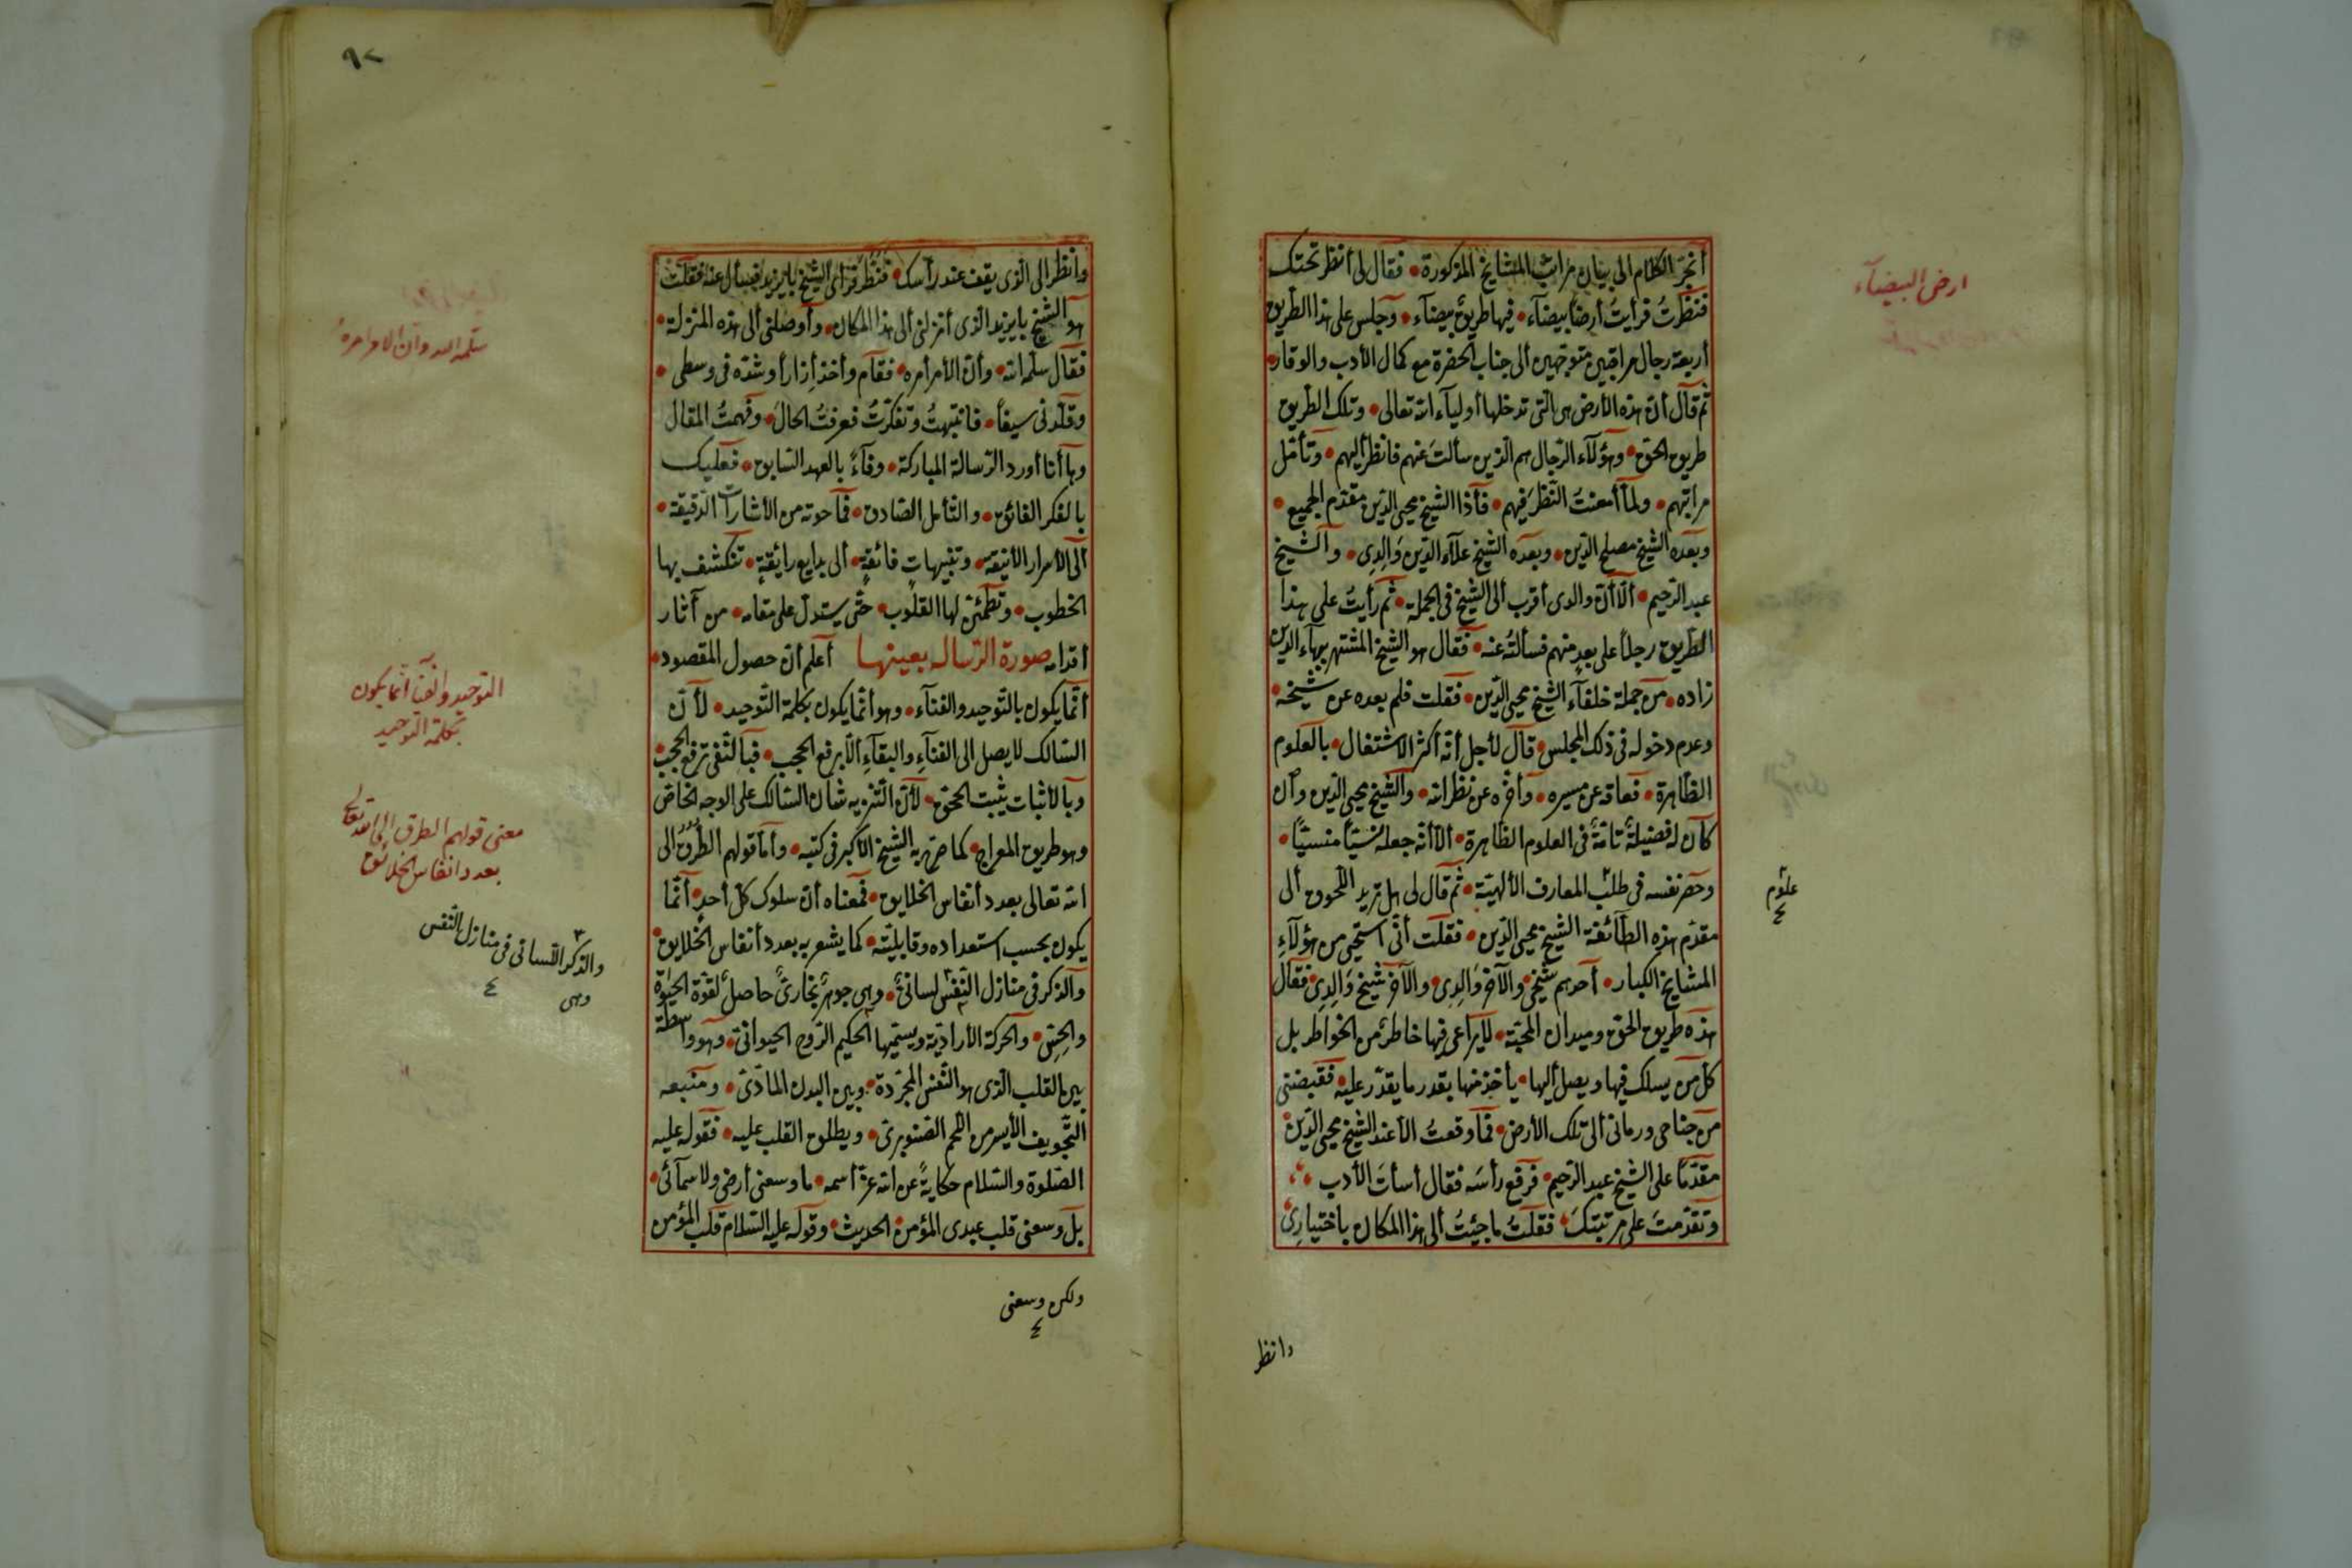 أنجر الكلام الى بيان مراتب المشايخ المذكورة • فقال لى أنظر تحتك
فنظرتُ فرأيتُ أرضاً بيضآء • فيها طريق بيضآء • وجلس على هذا الطريق
أربعة رجال مراقبين متوجهين ألى جناب الحضرة مع كمال الأدب والوقار •
ثم قال أن هذه الأرض هى الّتى تدخلها أوليآء الله تعالى • وتلك الطريق
طريق الحق • وهؤلآء الرّجال هم الّذين سألتَ عنهم فانظر أليهم • وتأمّل
مراتبهم • ولمّا أمعنتُ النّظرَ فيهم • فأذا الشيخ محيى الدّين مقدّم الجميع •
وبعده الشيخ مصلح الدّين • وبعده الشيخ علآء الدّين وَالِدِى • والشيخ
عبد الرّحيم • ألّا أنّ والدى أقرب ألى الشيخ فى الجملة • ثم رأيتُ على هذا
الطّريق رجلاً على بعدٍ منهم فسألتُه عنه • فقال هو الشيخ المشتهر ببهآء الدين
زاده • من جملة خلفآء الشيخ محيى الدّين • فقلت فلم بعده عن شيخه •
وعدم دخوله فى ذلك المجلس • قال لأجل أنّه أكثر الاشتغال • بالعلوم
الظّاهرة • فعاقه عن مسيره • وأخّره عن نظر الله • والشيخ محيى الدّين وأن
كان له فضيلةٌ تامّةٌ فى العلوم الظاهرة • الّا أنّه جعله نسيًا منسيًّا •
وحصر نفسه فى طلب المعارف الألهيّة • ثم قال لى هل تريد اللّحوق ألى
مقدّم هذه الطّآئفة الشيخ محيى الدّين • فقلت أنّى استحيى من هؤلآءِ
المشايخ الكبار • أحدهم شيخى والآخر وَالِدِى والآخر شيخ وَالِدِى • فقال
هذه طريق الحق وميدان المحبّة • لا يراعى فيها خاطرٌ من الخواطر بل
كل من يسلك فيها ويصل أليها • يأخذ منها بقدر ما يقدّر عليه • فقبضنى
من جناحى ورمانى ألى تلك الأرض • فما وقعتُ ألّا عند الشيخ محيى الدّين
مقدّمًا على الشيخ عبد الرّحيم • فرفع رأسَه فقال أسأتَ الأدب •
وتقدّمتَ على مرتبتكَ • فقلتُ ما جئتُ ألى هذا المكان باختيارِى
وانظر
ارض البيضآء
علوم
٤
٩٢
وانظر الى الّذى يقف عند رأسك • فنظر فرأى الشيخ بايزيد فسأل عنه فقلت
هو الشيخ بايزيد الّذى أنزلنى ألى هذا المكان • وأوصلنى ألى هذه المنزلة •
فقال سلّمه الله • وأنّ الأمر أمره • فقام وأخذ أزارًا وشدّه فى وسطى •
وقلّدنى سيفاً • فانتبهتُ وتفكّرتُ فعرفتُ الحالَ • وفهمتُ المقال
وها أنا أورد الرّسالة المباركة • وفآءً بالعهد السّابق • فعليك
بالفكر الفائق • والتأمل الصّادق • فما حوته من الأشارات الدّقيقة •
ألى الأسرار الأنيقة • وتنبيهاتٍ فائقةٍ • ألى بدايع رايقةٍ • تنكشف بها
الخطوب • وتطمئنّ لها القلوب • حتّى يستدلّ على مقامه • من آثار
أقدامه صورة الرّسالة بعينها أعلم أن حصول المقصود •
أنّما يكون بالتّوحيد والفنآء • وهو أنّما يكون بكلمة التّوحيد • لأنّ
السّالك لا يصل الى الفنآءِ والبقآءِ ألّا برفع الحجب • فبالنّفى ترفع الحجب •
وبالأثبات يثبت الحق • لأنّ التّنزيه شان السّالك على الوجه الخاص
وهو طريق المعراج • كما صرّح به الشيخ الأكبر فى كتبه • وأمّا قولهم الطُرُق الى
الله تعالى بعدد أنفاس الخلايق • فمعناه أن سلوك كل أحدٍ • أنّما
يكون بحسب استعداده وقابليّته • كما يشعر به بعدد أنفاس الخلايق •
والذكر فى منازل النّفس لسانىٌّ • وهى جوهرٌ بخارىٌّ حاصلٌ لقوّة الحيٰوة
والحِسّ • والحركة الأراديّة ويسمّيها الحكيم الرّوح الحيوانىّ • وهو واسطة
بين القلب الّذى هو النّفس المجرّدة • وبين البدن المادّىّ • ومنبعه
التّجويف الأيسر من اللّحم الصّنوبرىّ • ويطلق القلب عليه • فقوله عليه
الصّلوة والسّلام حكايةً عن الله عزّ أسمه • ما وسعنى أرضى ولا سمآئى •
بل وسعنى قلب عبدى المؤمن • الحديث • وقوله عليه السّلام قلب المؤمن
سلّمه الله وان الامر امرهُ
التوحيد والفنآ انما يكون
بكلمة التوحيد
معنى قولهم الطرق الى الله تعالى
بعدد انفاس الخلائق
والذكر اللسانى فى منازل النّفس
وهى
٤
ولكن وسعنى
٤